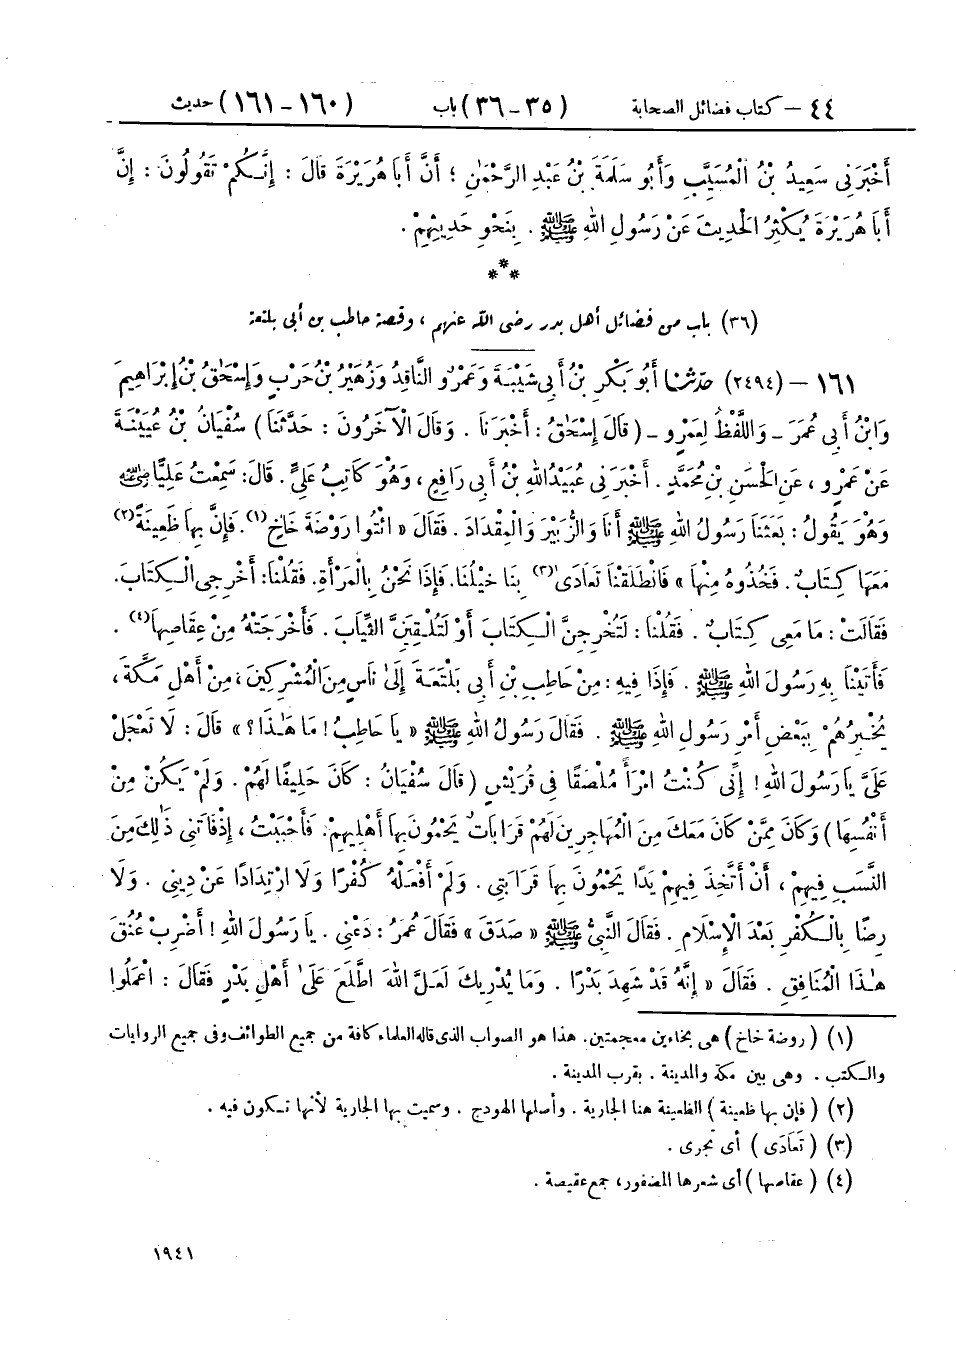 ٤٤ – كتاب فضائل الصحابة (٣٥-٣٦) باب (١٦٠-١٦١) حديث
أَخْبَرَنِي سَعِيدُ بْنُ الْمُسَيَّبِ وَأَبُو سَلَمَةَ بْنُ عَبْدِ الرَّحْمَٰنِ ؛ أَنَّ أَبَا هُرَيْرَةَ قَالَ : إِنَّكُمْ تَقُولُونَ : إِنَّ
أَبَا هُرَيْرَةَ يُكْثِرُ الْحَدِيثَ عَنْ رَسُولِ اللهِ ﷺ . بِنَحْوِ حَدِيثِهِمْ .
***
(٣٦) باب من فضائل أهل بدر رضى الله عنهم ، وقصة حاطب بن أبى بلتعة
١٦١ – (٢٤٩٤) حَدَّثَنَا أَبُو بَكْرِ بْنُ أَبِي شَيْبَةَ وَعَمْرٌو النَّاقِدُ وَزُهَيْرُ بْنُ حَرْبٍ وَإِسْحَاقُ بْنُ إِبْرَاهِيمَ
وَابْنُ أَبِي عُمَرَ – وَاللَّفْظُ لِعَمْرٍو – ( قَالَ إِسْحَاقُ : أَخْبَرَنَا . وَقَالَ الْآخَرُونَ : حَدَّثَنَا ) سُفْيَانُ بْنُ عُيَيْنَةَ
عَنْ عَمْرٍو ، عَنِ الْحَسَنِ بْنِ مُحَمَّدٍ . أَخْبَرَنِي عُبَيْدُ اللهِ بْنُ أَبِي رَافِعٍ ، وَهُوَ كَاتِبُ عَلِيٍّ . قَالَ : سَمِعْتُ عَلِيًّا رضى الله عنه
وَهُوَ يَقُولُ : بَعَثَنَا رَسُولُ اللهِ ﷺ أَنَا وَالزُّبَيْرَ وَالْمِقْدَادَ . فَقَالَ « ائْتُوا رَوْضَةَ خَاخٍ(١). فَإِنَّ بِهَا ظَعِينَةً(٢)
مَعَهَا كِتَابٌ . فَخُذُوهُ مِنْهَا » فَانْطَلَقْنَا تَعَادَى(٣) بِنَا خَيْلُنَا. فَإِذَا نَحْنُ بِالْمَرْأَةِ. فَقُلْنَا: أَخْرِجِي الْكِتَابَ.
فَقَالَتْ : مَا مَعِي كِتَابٌ . فَقُلْنَا : لَتُخْرِجِنَّ الْكِتَابَ أَوْ لَتُلْقِيَنَّ الثِّيَابَ . فَأَخْرَجَتْهُ مِنْ عِقَاصِهَا(٤) .
فَأَتَيْنَا بِهِ رَسُولَ اللهِ ﷺ . فَإِذَا فِيهِ : مِنْ حَاطِبِ بْنِ أَبِي بَلْتَعَةَ إِلَىٰ نَاسٍ مِنَ الْمُشْرِكِينَ، مِنْ أَهْلِ مَكَّةَ ،
يُخْبِرُهُمْ بِبَعْضِ أَمْرِ رَسُولِ اللهِ ﷺ . فَقَالَ رَسُولُ اللهِ ﷺ « يَا حَاطِبُ ! مَا هَٰذَا ؟ » قَالَ : لَا تَعْجَلْ
عَلَيَّ يَا رَسُولَ اللهِ ! إِنِّي كُنْتُ امْرَأً مُلْصَقًا فِي قُرَيْشٍ ( قَالَ سُفْيَانُ : كَانَ حَلِيفًا لَهُمْ . وَلَمْ يَكُنْ مِنْ
أَنْفُسِهَا ) وَكَانَ مِمَّنْ كَانَ مَعَكَ مِنَ الْمُهَاجِرِينَ لَهُمْ قَرَابَاتٌ يَحْمُونَ بِهَا أَهْلِيهِمْ. فَأَحْبَبْتُ ، إِذْ فَاتَنِي ذَٰلِكَ مِنَ
النَّسَبِ فِيهِمْ ، أَنْ أَتَّخِذَ فِيهِمْ يَدًا يَحْمُونَ بِهَا قَرَابَتِي . وَلَمْ أَفْعَلْهُ كُفْرًا وَلَا ارْتِدَادًا عَنْ دِينِي . وَلَا
رِضًا بِالْكُفْرِ بَعْدَ الْإِسْلَامِ . فَقَالَ النَّبِيُّ ﷺ « صَدَقَ » فَقَالَ عُمَرُ : دَعْنِي . يَا رَسُولَ اللهِ ! أَضْرِبْ عُنُقَ
هَٰذَا الْمُنَافِقِ . فَقَالَ « إِنَّهُ قَدْ شَهِدَ بَدْرًا . وَمَا يُدْرِيكَ لَعَلَّ اللهَ اطَّلَعَ عَلَىٰ أَهْلِ بَدْرٍ فَقَالَ : اعْمَلُوا
(١) ( روضة خاخ ) هى بخاءين معجمتين. هذا هو الصواب الذى قاله العلماء كافة من جميع الطوائف وفى جميع الروايات
والكتب . وهى بين مكة والمدينة . بقرب المدينة .
(٢) ( فإن بها ظعينة ) الظعينة هنا الجارية . وأصلها الهودج . وسميت بها الجارية لأنها تكون فيه .
(٣) ( تَعَادَى ) أى تجرى .
(٤) ( عقاصها ) أى شعرها المضفور، جمع عقيصة .
١٩٤١